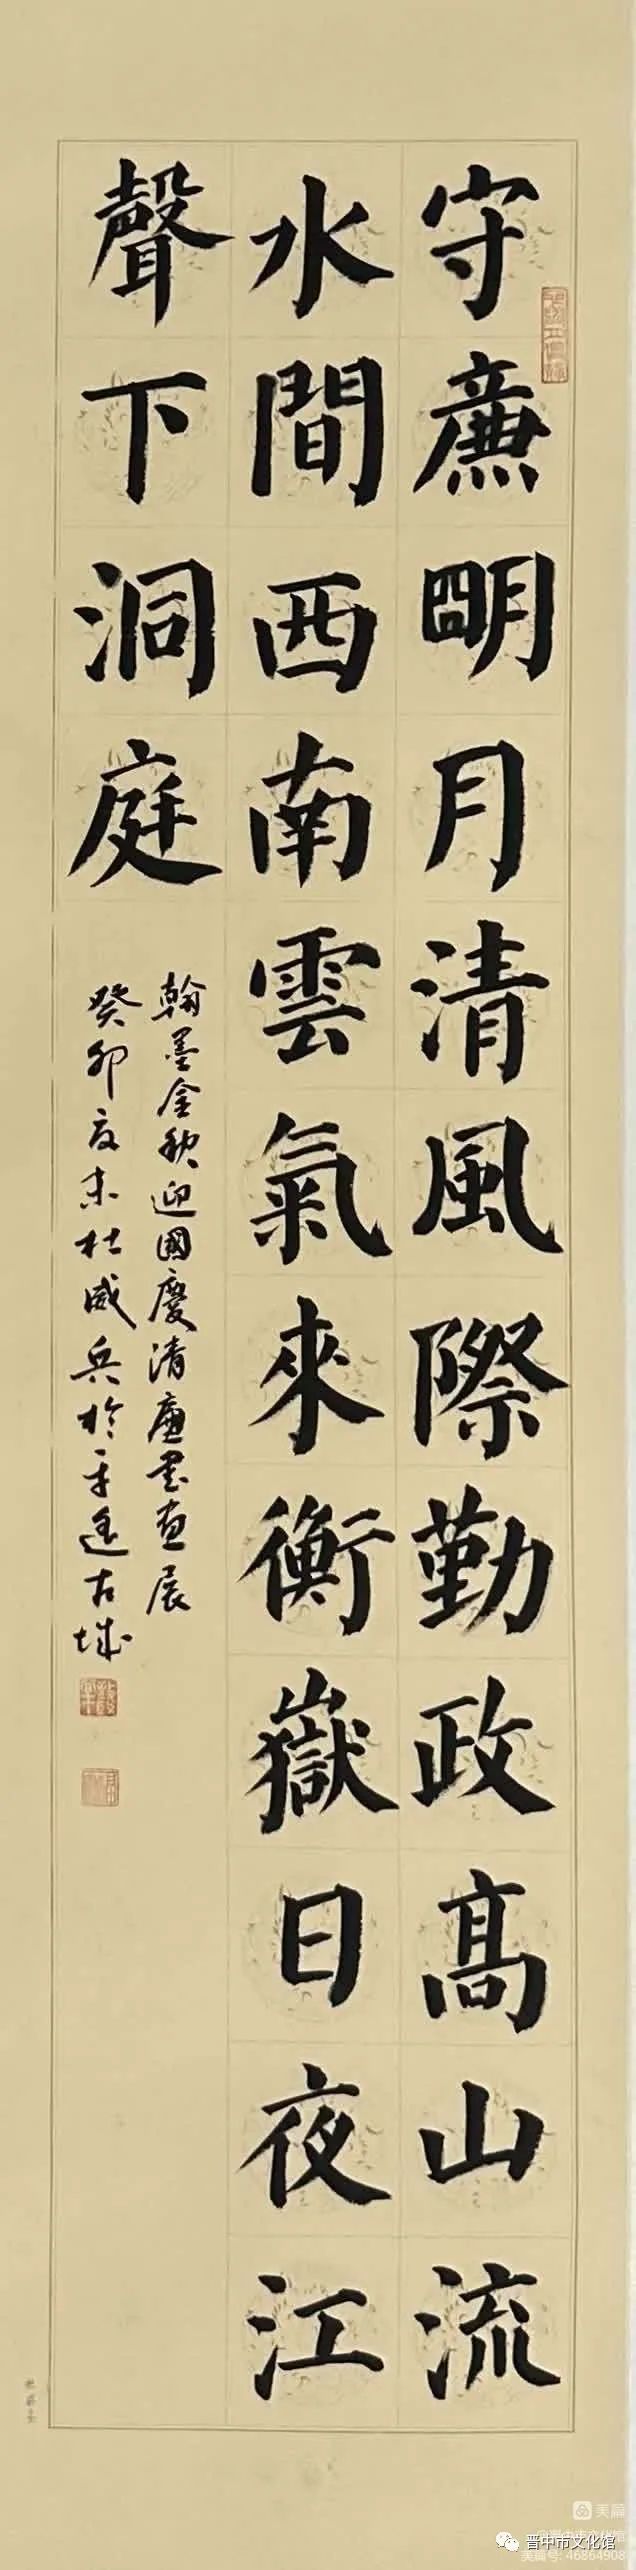 守廉明月清風際勤政高山流
水間西南雲氣來衡嶽日夜江
聲下洞庭
翰墨金秋迎國慶清廉書画展
癸卯夏末杜威兵於平遥古城
美篇
@晋中市文化馆
晋中市文化馆
美篇号: 46864908